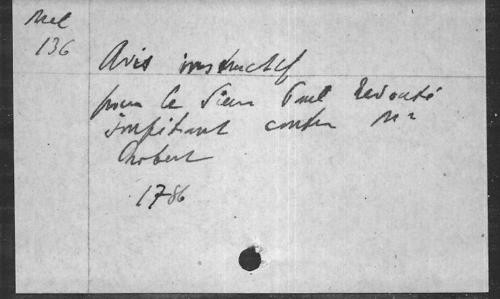 Mel
136
Avis instructif
pour le Sieur Paul Redouté
impétrant contre Mr
Nobert
1786